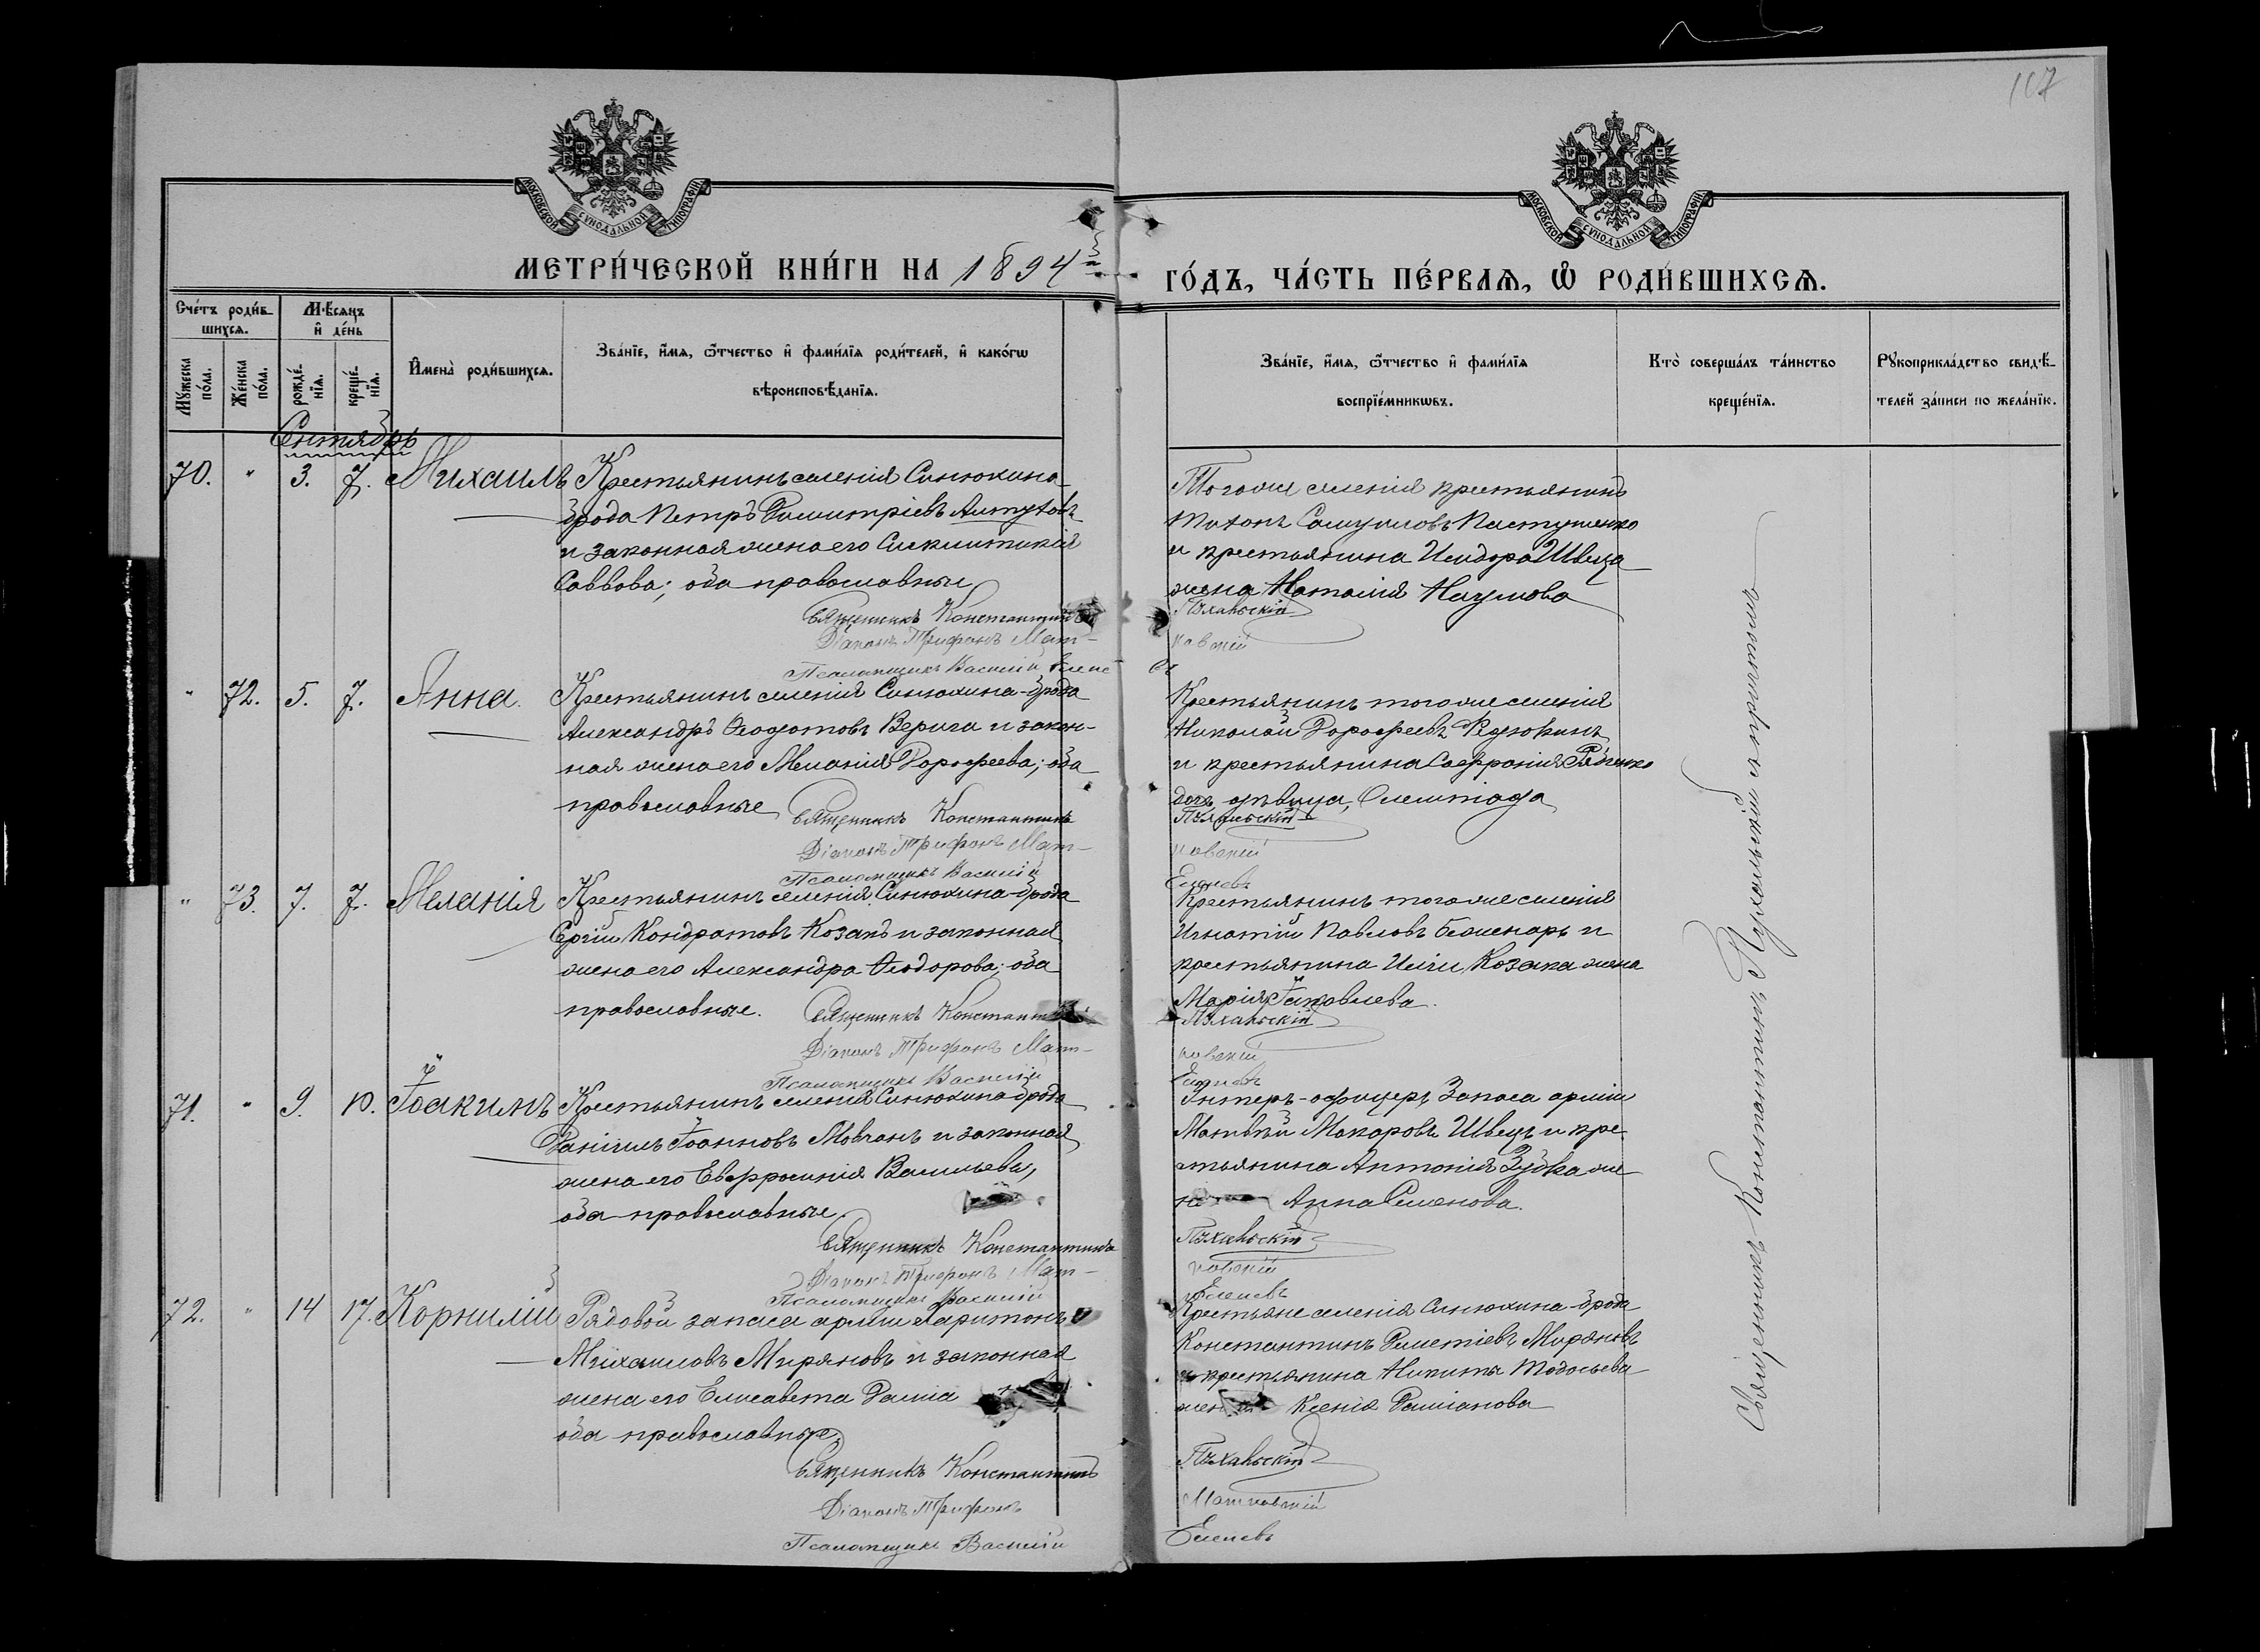 117
МОСКОВСКОЙ СУНОДАЛЬНОЙ ТИПОГРАФІИ
МОСКОВСКОЙ СУНОДАЛЬНОЙ ТИПОГРАФІИ
МЕТРИ́ЧЕСКОЙ КНИ́ГИ НА 1894й
ГО́ДЪ, ЧА́СТЬ ПЕ́РВАѦ, Ѽ РОДИ́ВШИХСѦ.
Сче́тъ роди́в-
шихсѧ.
Мѣ́сѧцъ
и҆ де́нь
Мꙋжеска по́ла.
Же́нска по́ла.
рожде́-
нїѧ.
креще́-
нїѧ.
И҆мена̀ роди́вшихсѧ.
Зва́нїе, и҆́мѧ, ѻ҆́тчество и҆ фами́лїѧ роди́телей, и҆ како́гѡ
вѣроисповѣ́данїѧ.
Зва́нїе, и҆́мѧ, ѻ҆́тчество и҆ фами́лїѧ
воспрїе́мникѡвъ.
Кто̀ соверша́лъ та́инство
креще́нїѧ.
Рꙋкоприкла́дство свидѣ́-
телей за́писи по жела́нїю.
Сентябрь
70. " 3. 7. Михаилъ
Крестьянинъ селенія Синюхина
брода Петръ Димитріевъ
и законная жена его Синклитикія
Саввова; оба православные
Священникъ Константинъ
Діаконъ Трифонъ Мат-
Псаломщикъ Василій
Тогоже селенія крестьянинъ
Тихонъ Самуиловъ Пастушенко
и крестьянина Исидора Швеца
жена Наталія Наумова
Пухальскій
ковскій
" 72. 5. 7. Анна.
Крестьянинъ селенія Синюхина-брода
Александръ Ѳеодотовъ Верига и закон-
ная жена его Меланія Дороѳеева; оба
православные
Священникъ Константинъ
Діаконъ Трифонъ Мат-
Псаломщикъ Василій
Крестьянинъ тогоже селенія
Николай Дороѳеевъ
и крестьянина Софронія
дочь дѣвица,
Пухальскій
ковскій
" 73. 7. 7. Меланія
Крестьянинъ селенія Синюхина-брода
Сергій Кондратовъ Козакъ и законная
жена его Александра Ѳеодорова; оба
православные.
Священникъ Константинъ
Діаконъ Трифонъ Мат-
Псаломщикъ Василій
Крестьянинъ тогоже селенія
Игнатій Павловъ и
крестьянина Иліи Козака жена
Марія Іаковлева.
Пухальскій
ковскій
71. " 9. 10. Іоакимъ
Крестьянинъ селенія Синюхина-брода
Даніилъ Іоанновъ Мовчанъ и законная
жена его Евфросинія Васильева,
оба православные.
Священникъ Константинъ
Діаконъ Трифонъ Мат-
Псаломщикъ Василій
Унтеръ-офицеръ Запаса арміи
Матвѣй Макаровъ Швецъ и кре
стьянина Антонія Зубка же
на Анна Семенова.
Пухальскій
ковскій
72. " 14 17. Корнилій
Рядовой запаса арміи Харитонъ
Михаиловъ Миряновъ и законная
жена его Елисавета Даміа
оба православные.
Священникъ Константинъ
Діаконъ Трифонъ
Псаломщикъ Василій
Крестьяне селенія Синюхина-брода
Константинъ Миряновъ
и крестьянина Никиты Тодосьева
жена Ксенія Даміанова
Пухальскій
Матковскій
Священникъ Константинъ Пухальскій съ причтомъ